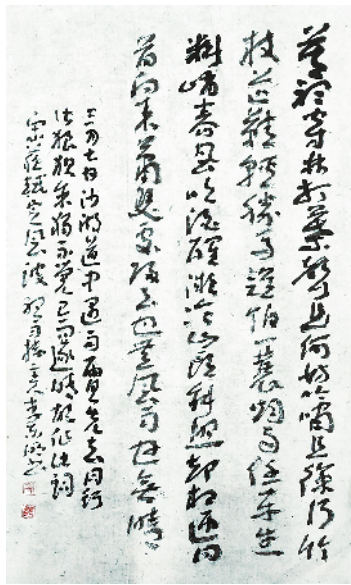 莫聽穿林打葉聲何妨吟嘯且徐行竹
杖芒鞋輕勝馬誰怕一蓑煙雨任平生
料峭春風吹酒醒微冷山頭斜照卻相迎回
首向來蕭瑟處歸去也無風雨也無晴
三月七日沙湖道中遇雨雨具先去同行
皆狼狽余獨不覺已而遂晴故作此詞
宋蘇軾定風波